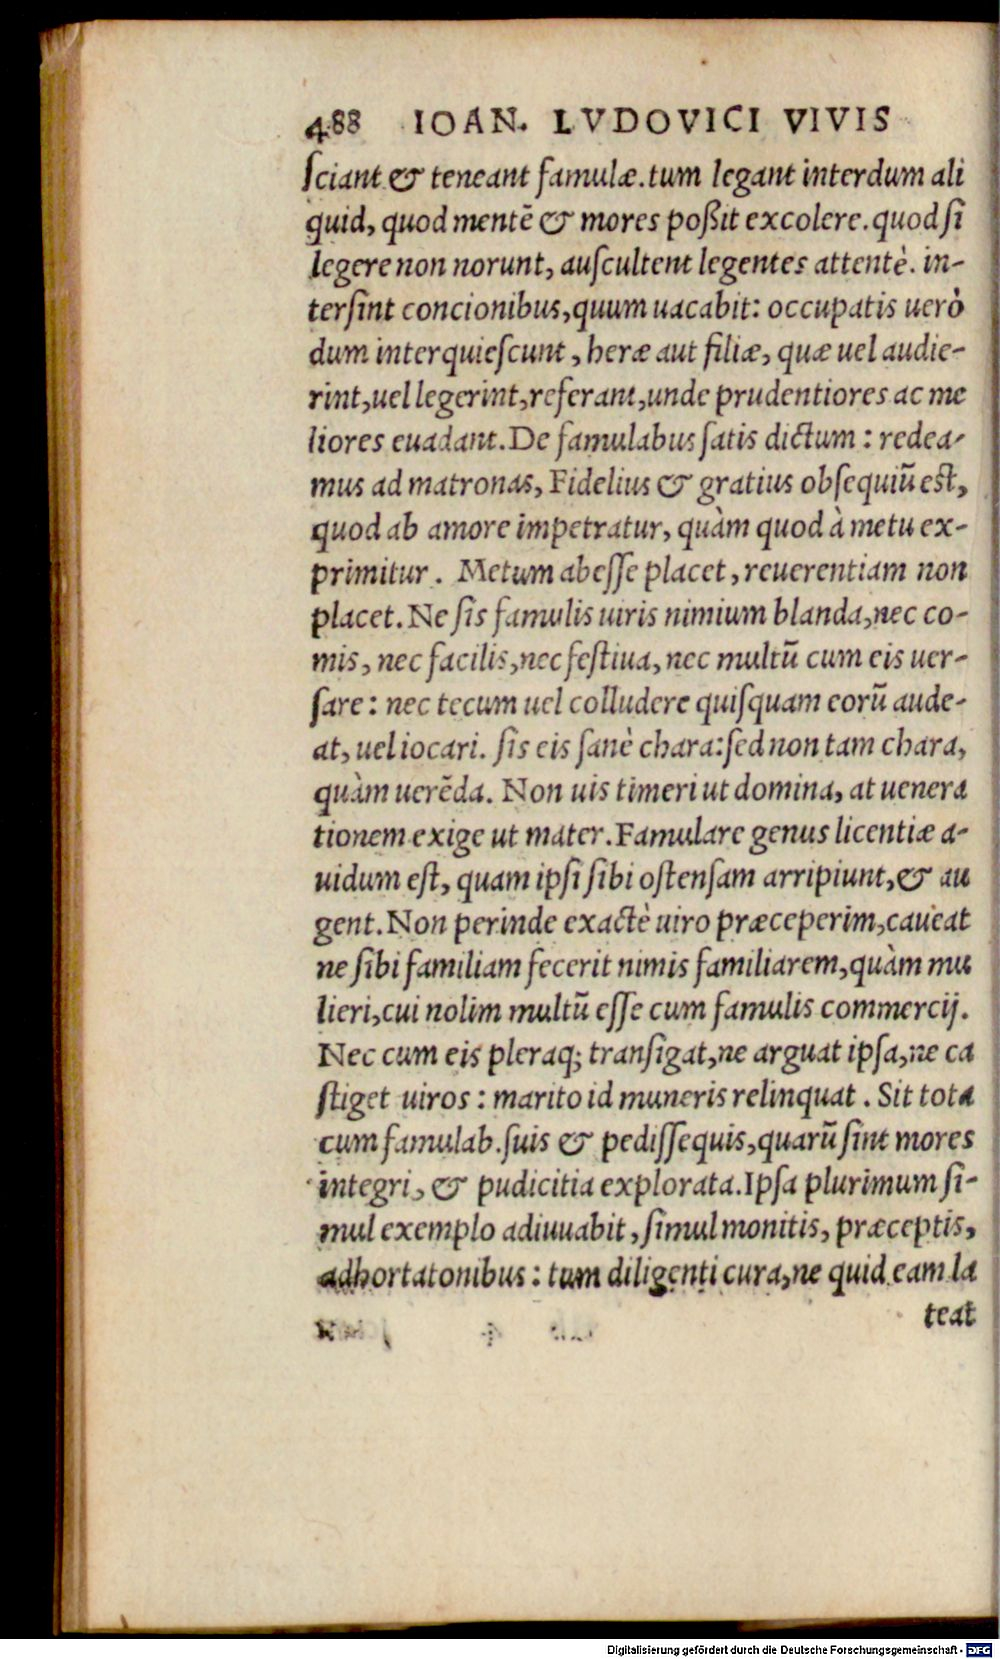 488 IOAN. LVDOVICI VIVIS
ſciant & teneant famulæ. tum legant interdum ali
quid, quod mentẽ & mores poßit excolere. quod ſi
legere non norunt, auſcultent legentes attentè. in-
terſint concionibus, quum uacabit: occupatis uerò
dum interquieſcunt, heræ aut filiæ, quæ uel audie-
rint, uel legerint, referant, unde prudentiores ac me
liores euadant. De famulabus ſatis dictum: redea-
mus ad matronas, Fidelius & gratius obſequiũ est,
quod ab amore impetratur, quàm quod à metu ex-
primitur. Metum abeſſe placet, reuerentiam non
placet. Ne ſis famulis uiris nimium blanda, nec co-
mis, nec facilis, nec feſtiua, nec multũ cum eis uer-
ſare: nec tecum uel colludere quiſquam eorũ aude-
at, uel iocari. ſis eis ſanè chara: ſed non tam chara,
quàm uerẽda. Non uis timeri ut domina, at uenera
tionem exige ut mater. Famulare genus licentiæ a-
uidum eſt, quam ipſi ſibi oſtenſam arripiunt, & au
gent. Non perinde exactè uiro præceperim, caueat
ne ſibi familiam fecerit nimis familiarem, quàm mu
lieri, cui nolim multũ eſſe cum famulis commercij.
Nec cum eis pleraq; tranſigat, ne arguat ipſa, ne ca
ſtiget uiros: marito id muneris relinquat. Sit tota
cum famulab. ſuis & pediſſequis, quarũ ſint mores
integri, & pudicitia explorata. Ipſa plurimum ſi-
mul exemplo adiuuabit, ſimul monitis, præceptis,
adhortatonibus: tum diligenti cura, ne quid eam la
teat
Digitalisierung gefördert durch die Deutsche Forschungsgemeinschaft - DFG